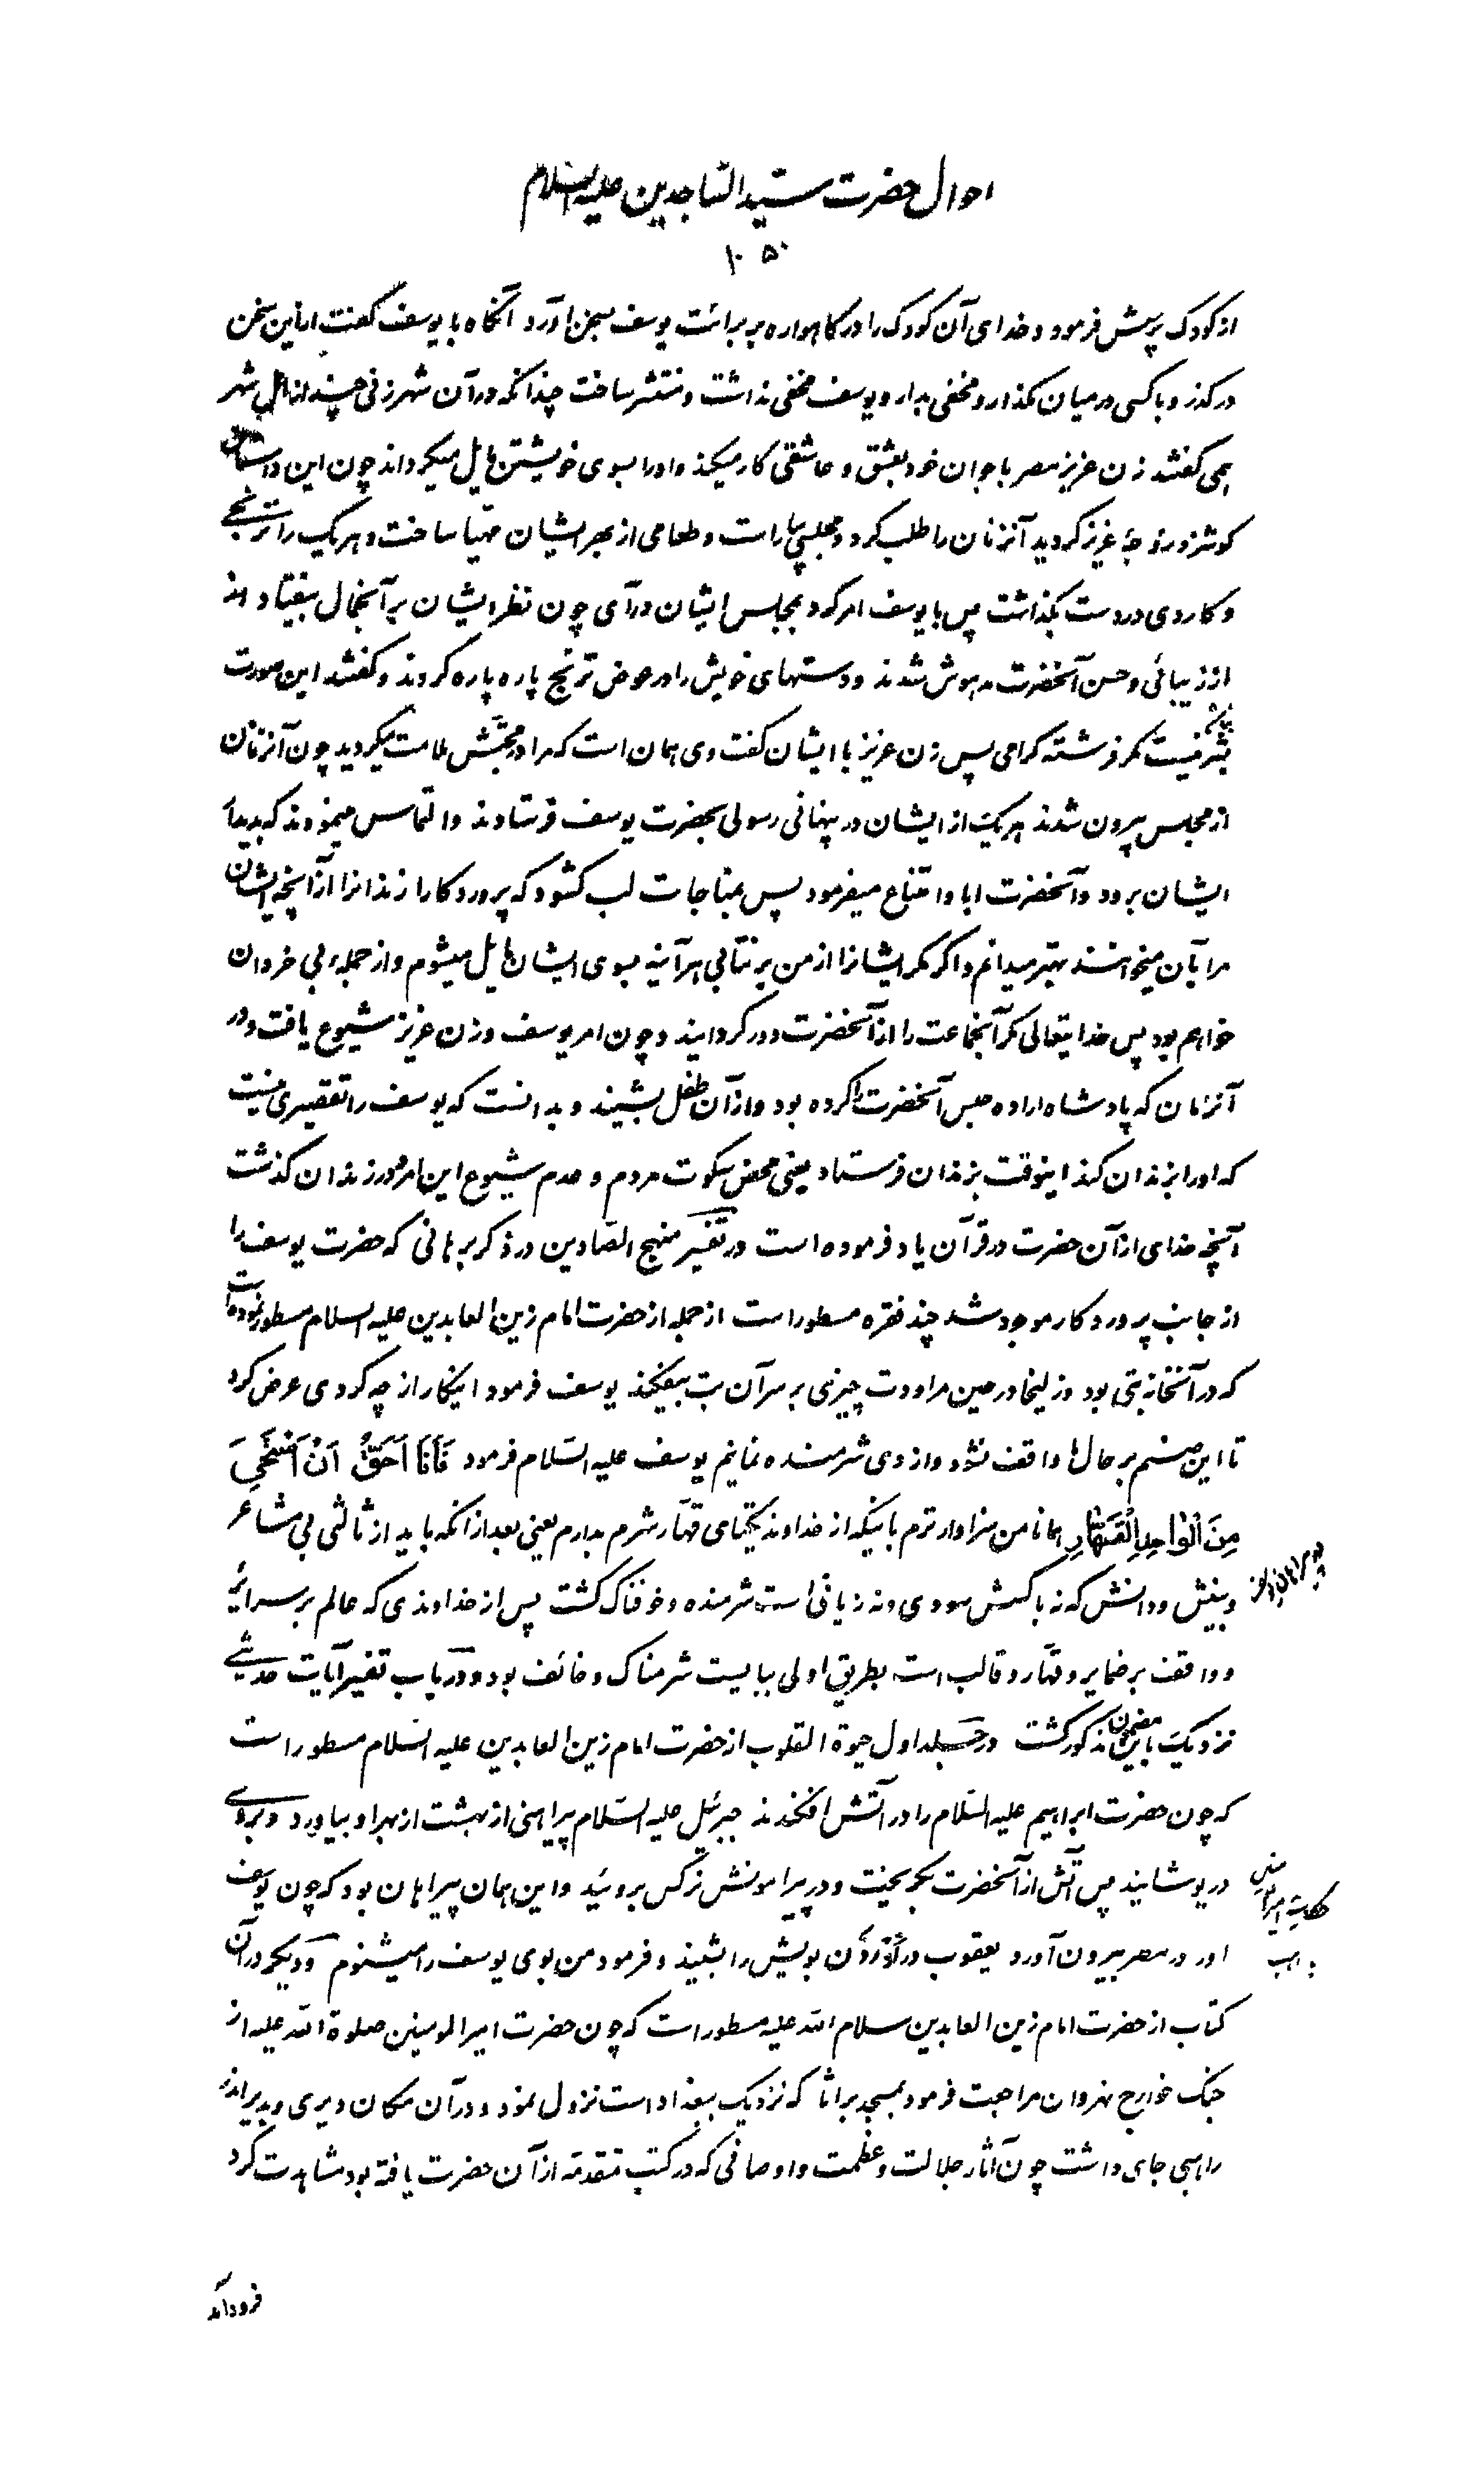 احوال حضرت سیّد السّاجدین علیه السلام
۱۰۵۰
از کودک پرسش فرمود و خدای آن کودک را در کاهواره بر برائت یوسف بسخن آورد آنکاه با یوسف کفت از این سخن
در کذر و با کسی در میان مکذار و مخفی بدار و یوسف مخفی نداشت و منتشر ساخت چندانکه در آن شهر زنی چند از اهل شهر
همی کفتند زن عزیز مصر با جوان خود بعشق و عاشقی کار میکند و او را بسوی خویشتن مایل میکرداند چون این داستان
کوشزد زوجهٔ عزیز کردید آنزنان را طلب کرد و مجلسی بیاراست و طعامی از بهر ایشان مهیّا ساخت و هر یک را ترنجی
و کاردی در دست بکذاشت پس با یوسف امر کرد بمجلس ایشان در آی چون نظر ایشان بر آنجمال بیفتاد از
از زیبائی و حسن آنحضرت مدهوش شدند و دستهای خویش را در عوض ترنج پاره پاره کردند و کفتند این صورت
بشر نیست مکر فرشته کرامی پس زن عزیز با ایشان کفت وی همان است که مرا در محبّتش ملامت میکردید چون آنزنان
از مجلس بیرون شدند هر یک از ایشان در پنهانی رسولی بحضرت یوسف فرستادند و التماس مینمودند که بدیدار
ایشان برود و آنحضرت ابا و امتناع میفرمود پس بمناجات لب کشود که پروردکارا زندانرا از آنچه ایشان
مرا بآن میخوانند بهتر میدانم و اکر مکر ایشانرا از من بر نتابی هر آینه بسوی ایشان مایل میشوم و از جمله بی خردان
خواهم بود پس خدایتعالی مکر آنجماعت را از آنحضرت دور کردانید و چون امر یوسف و زن عزیز شیوع یافت و در
آنزمان که پادشاه اراده حبس آنحضرت را کرده بود و از آن طفل بشنید و بدانست که یوسف را تقصیری نیست
که او را بزندان کند اینوقت بزندان فرستاد یعنی محض سکوت مردم و عدم شیوع این امر و در زندان کذشت
آنچه خدای از آن حضرت در قرآن یاد فرموده است در تفسیر منهج الصّادقین در ذکر برهانی که حضرت یوسف را
از جانب پروردکار موجود شد چند فقره مسطور است از جمله از حضرت امام زین العابدین علیه السلام مسطور نموده است
که در آنخانه بتی بود و زلیخا در حین مراودت چیزی بر سر آن بت بیفکند یوسف فرمود اینکار از چه کردی عرض کرد
تا این صنم بر حال ما واقف نشود و از وی شرمنده نمانیم یوسف علیه السّلام فرمود فَاَنَا اَحَقُّ اَنْ اَسْتَحْیِیَ
مِنَ الْواحِدِ الْقَهّارِ همانا من سزاوار ترم باینکه از خداوند یکتای قهّار شرم بدارم یعنی بعد از آنکه باید از تمثالی بی مشاعر
و بینش و دانش که نه با کسش سودی و نه زیانی است شرمنده و خوفناک کشت پس از خداوندی که عالم بر سرائر
و واقف بر ضمایر و قهّار و غالب است بطریق اولی ببایست شرمناک و خائف بود و در باب تفسیر آیات حدیثی
نزدیک باین مضمون مذکور کشت در جلد اول حیوة القلوب از حضرت امام زین العابدین علیه السّلام مسطور است
که چون حضرت ابراهیم علیه السّلام را در آتش افکندند جبرئیل علیه السّلام پیراهنی از بهشت از بهر او بیاورد و بروی
در پوشانید پس آتش از آنحضرت بکریخت و در پیرامونش نرکس بروئید و این همان پیراهان بود که چون یوسف
او را در مصر بیرون آورد یعقوب در اردن بویش را بشنید و فرمود من بوی یوسف را میشنوم و دیکر در آن
حکایت امیرالمؤمنین
راهب
کتاب از حضرت امام زین العابدین سلام الله علیه مسطور است که چون حضرت امیر المومنین صلوة الله علیه از
جنک خوارج نهروان مراجعت فرمود بمسجد براثا که نزدیک ببغداد است نزول نمود و در آن مکان دیری و بدیر اندر
راهبی جای داشت چون آثار جلالت و عظمت و اوصافی که در کتب متقدمه از آن حضرت یافته بود مشاهدت کرد
فرود آمد